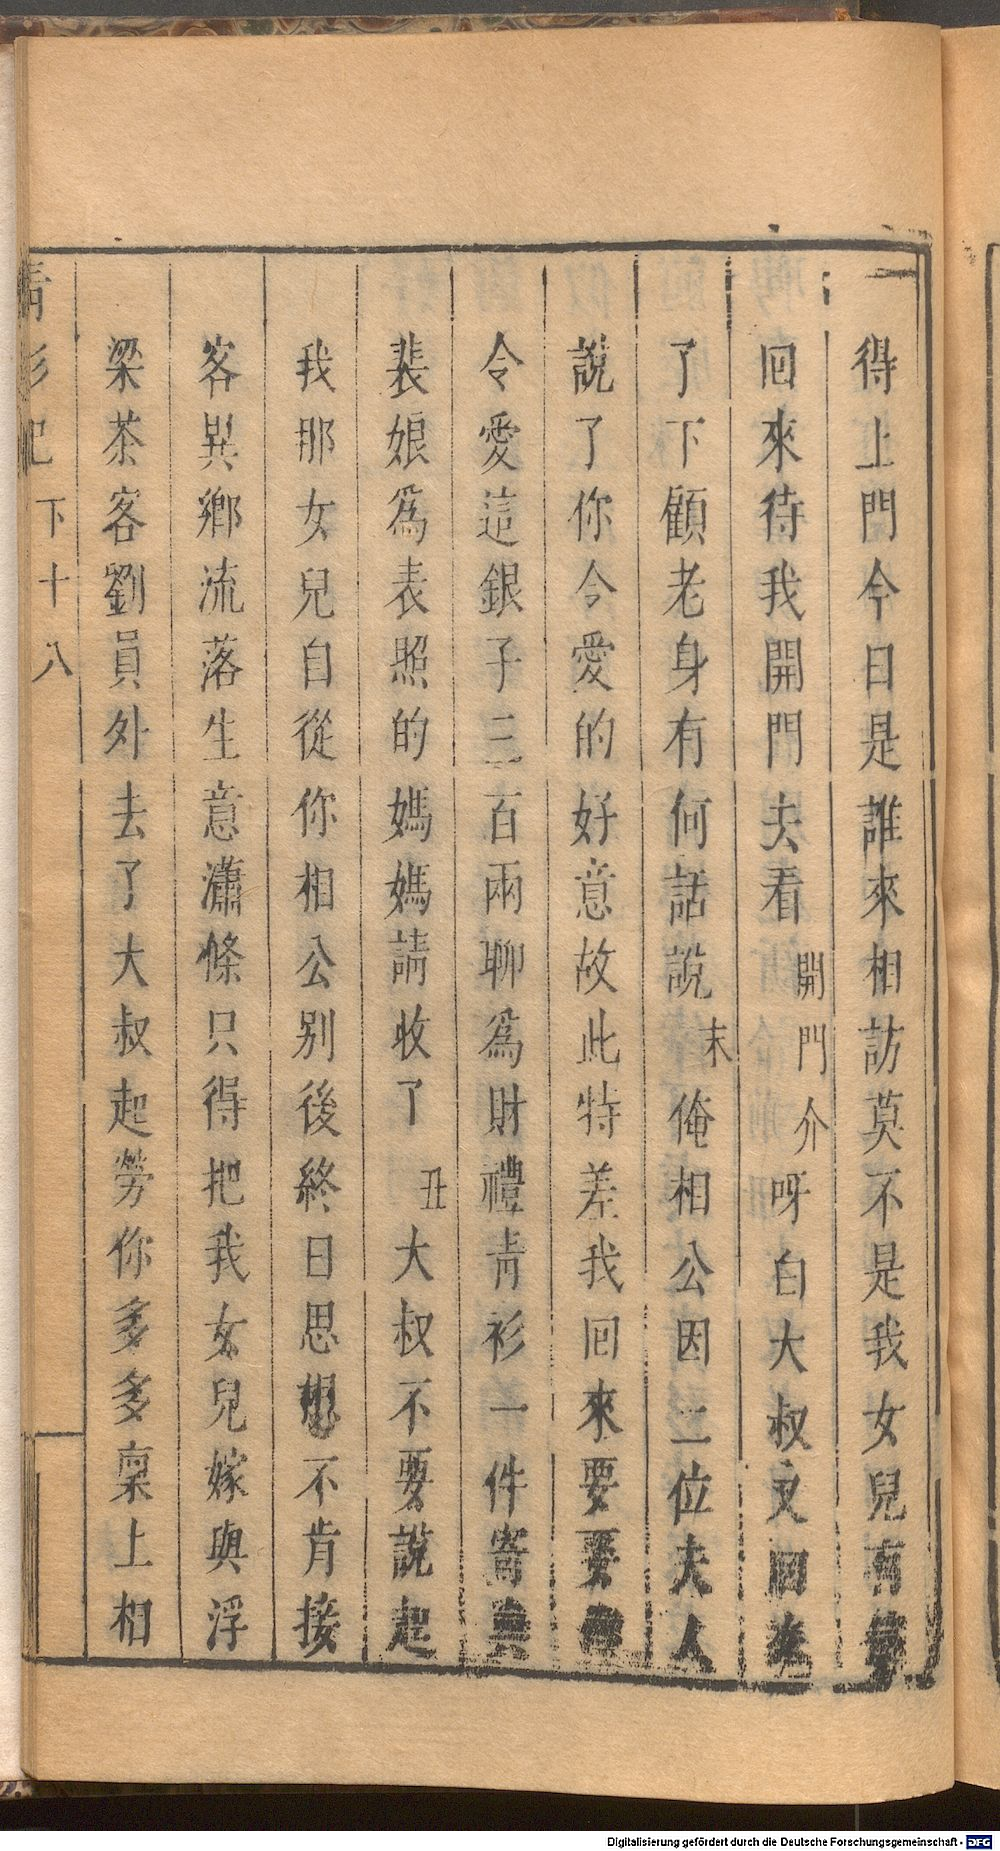 得上門今日是誰來相訪莫不是我女兒有
回來待我開門去看開門介呀白大叔又回來
了下顧老身有何話說末俺相公因二位夫人
說了你令愛的好意故此特差我回來要要
令愛這銀子三百兩聊爲財禮青衫一件寄
裴娘爲表照的媽媽請收了丑大叔不要說起
我那女兒自從你相公别後終日思想不肯接
客異鄉流落生意瀟條只得把我女兒嫁與浮
梁茶客劉員外去了大叔起勞你多多稟上相
青衫記 下十八
Digitalisierung gefördert durch die Deutsche Forschungsgemeinschaft - DFG